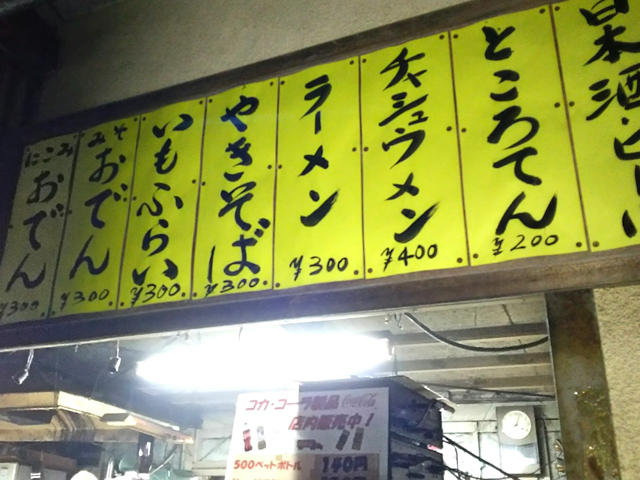 日本酒・ビール
ところてん
¥200
チャシュウメン
¥400
ラーメン
¥300
やきそば
¥300
いもふらい
¥300
みそ
おでん
¥300
にこみ
おでん
¥300
コカ・コーラ製品 Coca-Cola
店内販売中!
500ペットボトル 140円